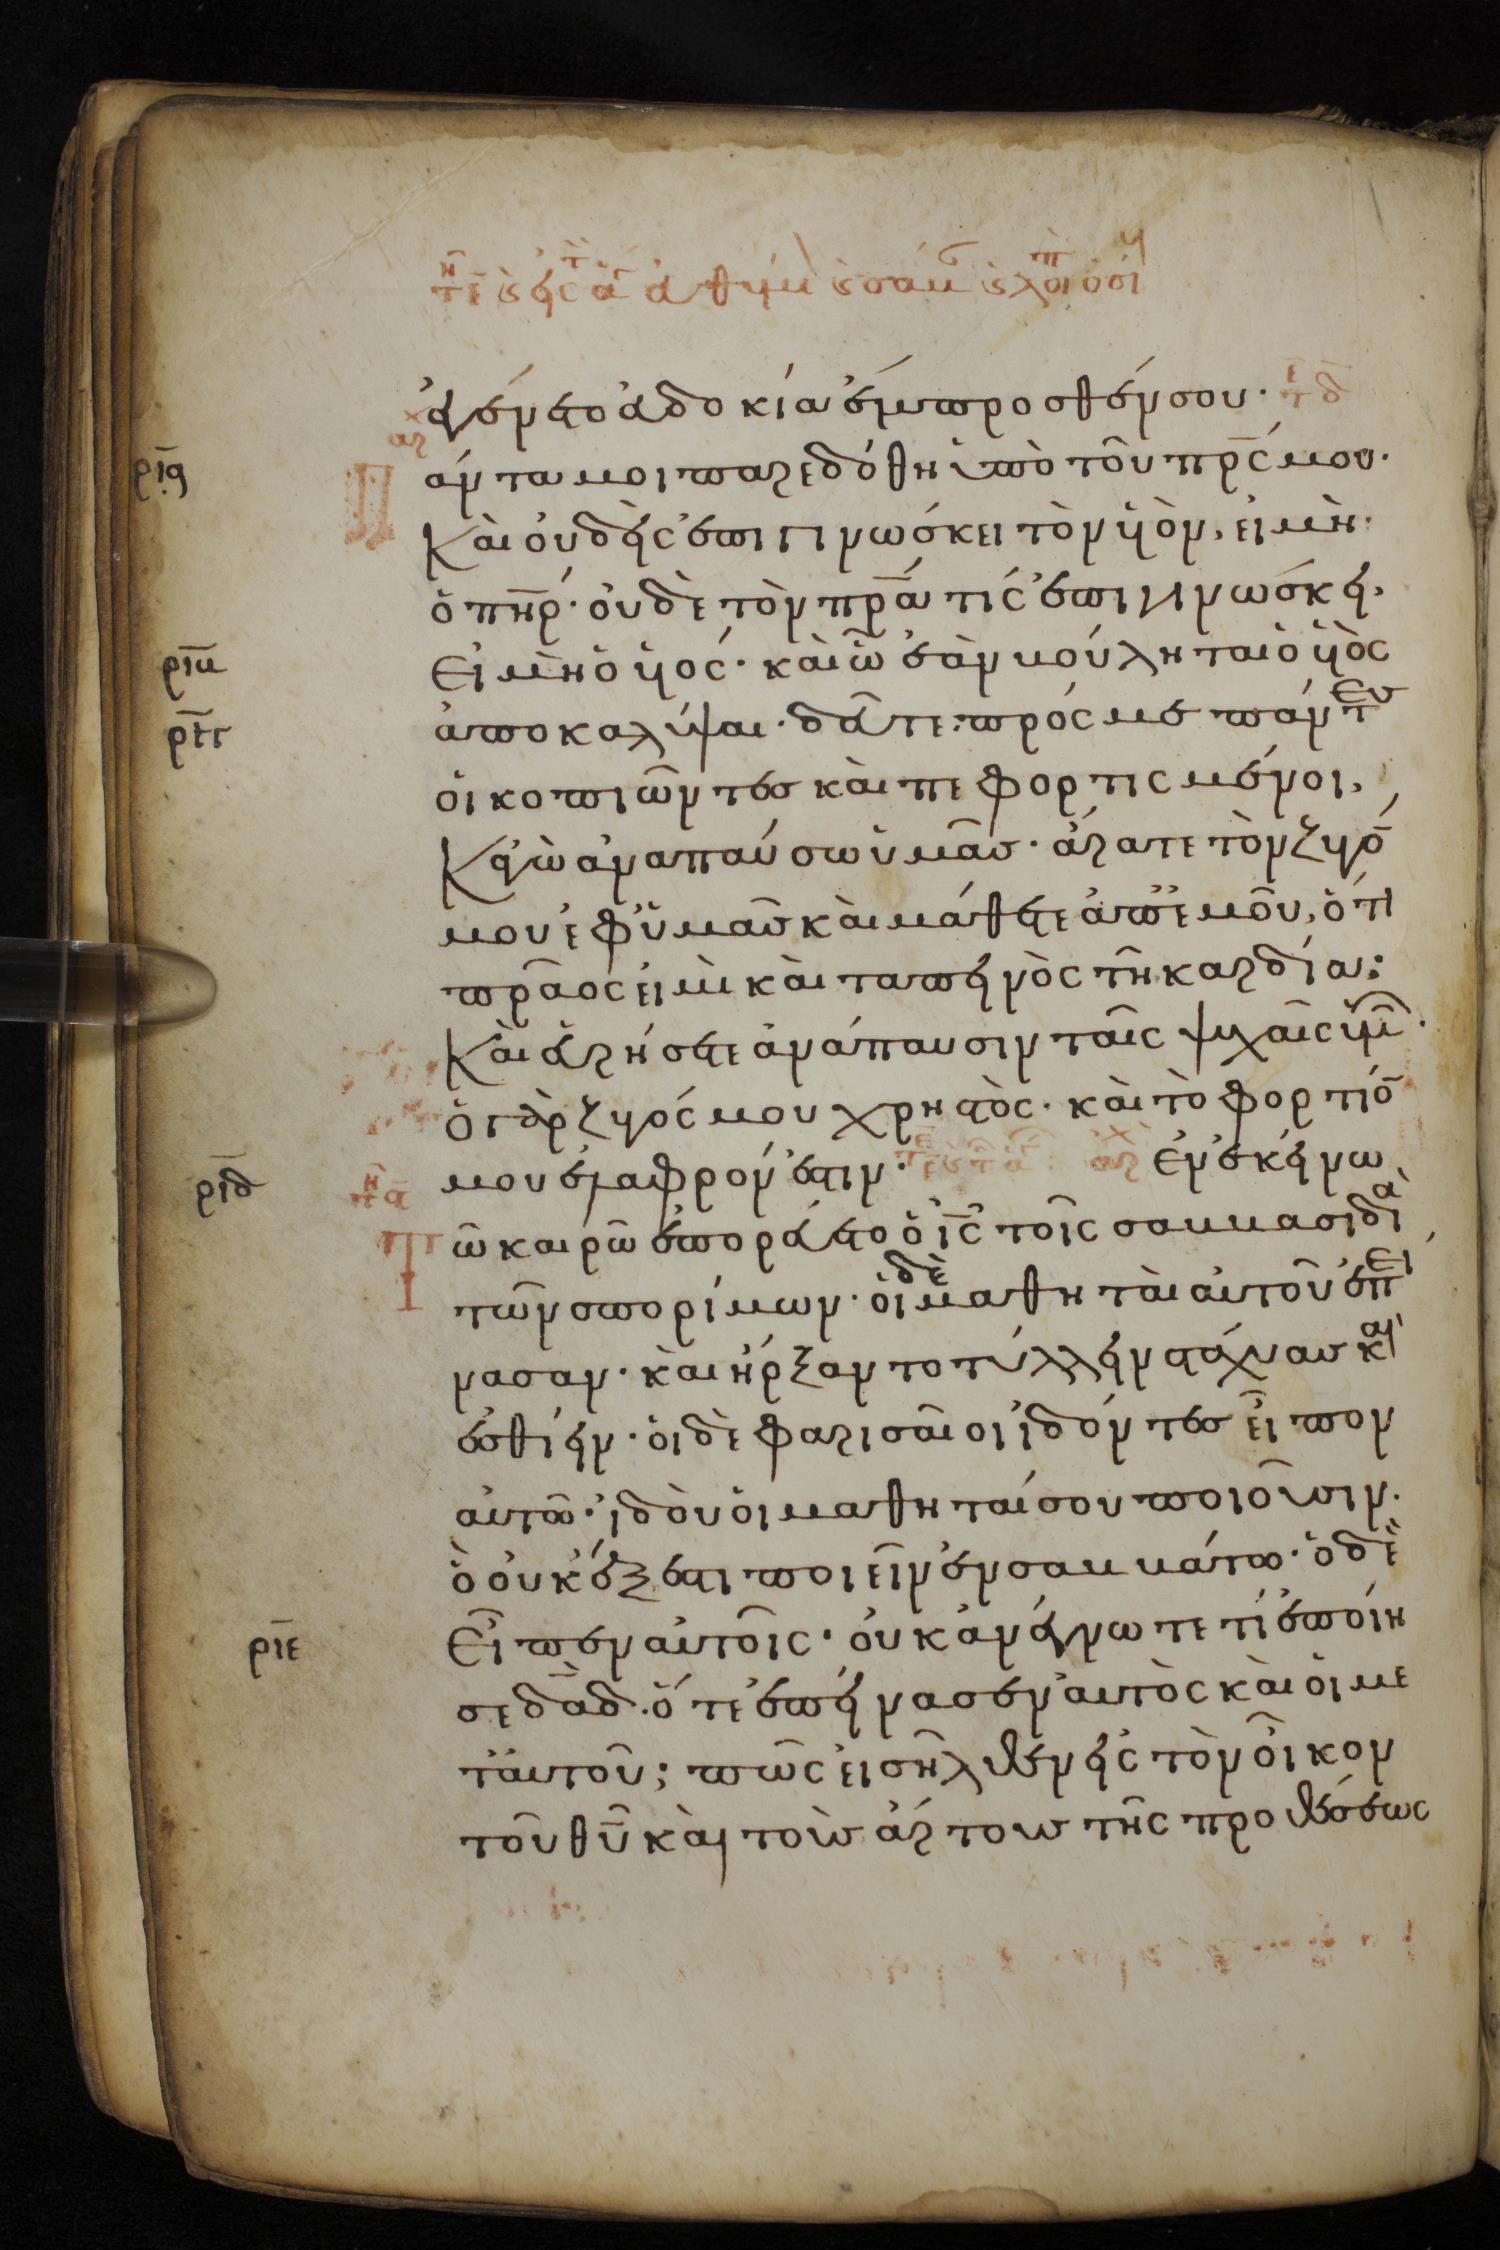 ἐγένετο ἐυδοκία ἔμπροσθέν σου·
Πάντα μοι παρεδόθη ὑπὸ τοῦ πρ̅ς μου·
Καὶ οὐδεὶς ἐπιγινώσκει τὸν ὑϊὸν, εἰ μὴ
ὁ πηρ̅· οὐδὲ τὸν πρ̅α τίς ἐπιγινώσκει,
εἰ μὴ ὁ ὑϊός· καὶ ὧ ἐὰν βούληται ὁ ὑϊὸς
ἀποκαλύψαι· δεῦτε πρός με πάντες
οἱ κοπιῶντες καὶ πεφορτισμένοι,
Κἀγὼ ἀναπαύσω ὑμᾶς· ἄρατε τὸν ζυγό̅
μου ἐφ ὑμᾶς καὶ μάθετε ἀπ ἐμοῦ, ὅτι
πρᾶος εἰμὶ καὶ ταπεινὸς τῆ καρδία·
Καὶ εὑρήσετε ἀνάπαυσιν ταῖς ψυχαῖς ὑμῶ̅·
ὁ γὰρ ζυγός μου χρηστὸς· καὶ τὸ φορτίο̅
μου ἐλαφρόν ἐστιν· Ἐν ἐκείνω
Τῶ καιρῶ ἐπορεύετο ὁ ι̅ς τοῖς σαββασι διὰ
τῶν σπορίμων· οἱ δὲ μαθηταὶ αὐτοῦ ἐπεί
νασαν· καὶ ἤρξαντο τύλλειν στάχυας καὶ
ἐσθίειν· οἱ δὲ φαρισαῖοι ἰδόντες εἶπον
αὐτῶ· ἰδοὺ οἱ μαθηταί σου ποιοῦσιν·
ὃ οὐκ ἔξεστι ποιεῖν ἐν σαββάτω· ὁ δὲ
εἶπεν αὐτοῖς· οὐκ ἀνέγνωτε τί ἐποίη
σε δα̅δ· ὅτε ἐπείνασεν αὐτὸς καὶ οἱ με
τ αὐτοῦ; πῶς εἰσῆλθεν εἰς τὸν οἶκον
τοῦ θυ̅ καὶ τοὺς ἄρτους τῆς προθέσεως
ρι̅β
ρι̅γ
ρι̅δ
ρι̅ε